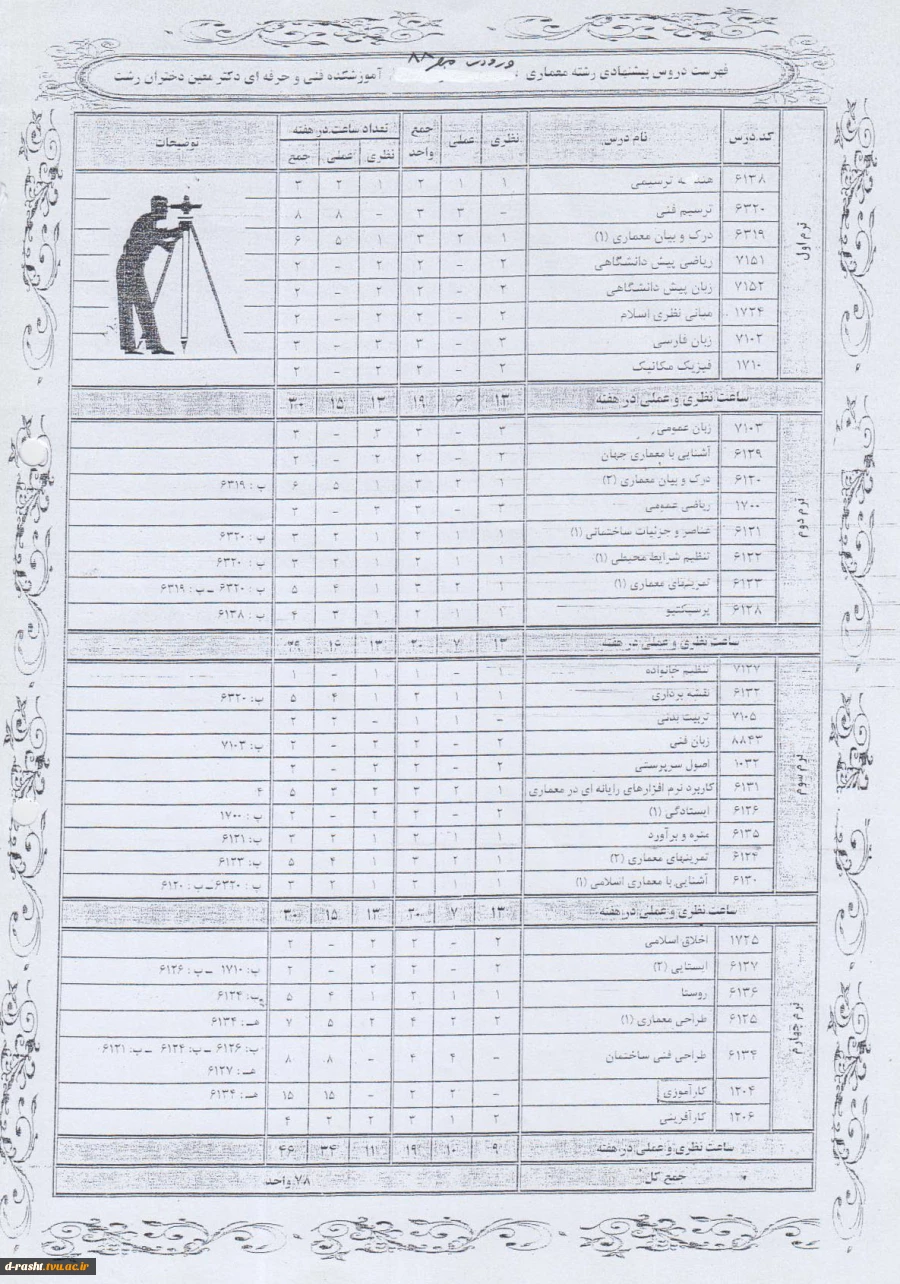 ورودی مهر ۸۸
فهرست دروس پیشنهادی رشته معماری آموزشکده فنی و حرفه ای دکتر معین دختران رشت
کد درس نام درس نظری عملی جمع واحد تعداد ساعت در هفته توضیحات
نظری عملی جمع
ترم اول
۶۱۳۸ هندسه ترسیمی ۱ ۱ ۲ ۱ ۲ ۳
۶۳۲۰ ترسیم فنی - ۳ ۳ - ۸ ۸
۶۳۱۹ درک و بیان معماری (۱) ۱ ۲ ۳ ۱ ۵ ۶
۷۱۵۱ ریاضی پیش دانشگاهی ۲ - ۲ ۲ - ۲
۷۱۵۲ زبان پیش دانشگاهی ۲ - ۲ ۲ - ۲
۱۷۲۴ مبانی نظری اسلام ۲ - ۲ ۲ - ۲
۷۱۰۲ زبان فارسی ۳ - ۳ ۳ - ۳
۱۷۱۰ فیزیک مکانیک ۲ - ۲ ۲ - ۲
ساعت نظری و عملی در هفته ۱۳ ۶ ۱۹ ۱۳ ۱۵ ۳۰
ترم دوم
۷۱۰۳ زبان عمومی ۳ - ۳ ۳ - ۳
۶۱۲۹ آشنایی با معماری جهان ۲ - ۲ ۲ - ۲
۶۱۲۰ درک و بیان معماری (۲) ۱ ۲ ۳ ۱ ۵ ۶ پ: ۶۳۱۹
۱۷۰۰ ریاضی عمومی ۳ - ۳ ۳ - ۳
۶۱۲۱ عناصر و جزئیات ساختمانی (۱) ۱ ۱ ۲ ۱ ۲ ۳ پ: ۶۳۲۰
۶۱۲۲ تنظیم شرایط محیطی (۱) ۱ ۱ ۲ ۱ ۲ ۳ پ: ۶۳۲۰
۶۱۲۳ تمرینهای معماری (۱) ۱ ۲ ۳ ۱ ۴ ۵ پ: ۶۳۲۰ ـ پ: ۶۳۱۹
۶۱۲۸ پرسپکتیو ۱ ۱ ۲ ۱ ۳ ۴ پ: ۶۱۳۸
ساعت نظری و عملی در هفته ۱۳ ۷ ۲۰ ۱۳ ۱۶ ۲۹
ترم سوم
۷۱۲۷ تنظیم خانواده ۱ - ۱ ۱ - ۱
۶۱۳۲ نقشه برداری ۱ ۱ ۲ ۱ ۴ ۵ پ: ۶۳۲۰
۷۱۰۵ تربیت بدنی - ۱ ۱ - ۲ ۲
۸۸۴۳ زبان فنی ۲ - ۲ ۲ - ۲ پ: ۷۱۰۳
۱۰۳۲ اصول سرپرستی ۲ - ۲ ۲ - ۲
۶۱۳۱ کاربرد نرم افزارهای رایانه ای در معماری ۱ ۲ ۳ ۲ ۳ ۵ ۴
۶۱۲۶ ایستادگی (۱) ۲ - ۲ ۲ - ۲ پ: ۱۷۰۰
۶۱۳۵ متره و برآورد ۱ ۱ ۲ ۱ ۲ ۳ پ: ۶۱۲۱
۶۱۲۴ تمرینهای معماری (۲) ۱ ۲ ۳ ۱ ۴ ۵ پ: ۶۱۲۳
۶۱۳۰ آشنایی با معماری اسلامی (۱) ۱ ۱ ۲ ۱ ۲ ۳ پ: ۶۳۲۰ـ پ: ۶۱۲۰
ساعت نظری و عملی در هفته ۱۳ ۷ ۲۰ ۱۳ ۱۵ ۳۰
ترم چهارم
۱۷۲۵ اخلاق اسلامی ۲ - ۲ ۲ - ۲
۶۱۲۷ ایستایی (۲) ۲ - ۲ ۲ - ۲ پ: ۱۷۱۰ ـ پ: ۶۱۲۶
۶۱۳۶ روستا ۱ ۱ ۲ ۱ ۴ ۵ پ: ۶۱۲۴
۶۱۲۵ طراحی معماری (۱) ۲ ۲ ۴ ۲ ۵ ۷ هـ: ۶۱۳۴
۶۱۳۴ طراحی فنی ساختمان - ۴ ۴ - ۸ ۸ پ: ۶۱۲۶ ـ پ: ۶۱۲۴ ـ پ: ۶۱۲۱
هـ: ۶۱۲۷
۱۲۰۴ کارآموزی - ۲ ۲ - ۱۵ ۱۵ هـ: ۶۱۳۴
۱۲۰۶ کارآفرینی ۲ ۱ ۳ ۲ ۲ ۴
ساعت نظری و عملی در هفته ۹ ۱۰ ۱۹ ۱۱ ۳۴ ۴۶
جمع کل ۷۸ واحد
d-rasht.tvu.ac.ir